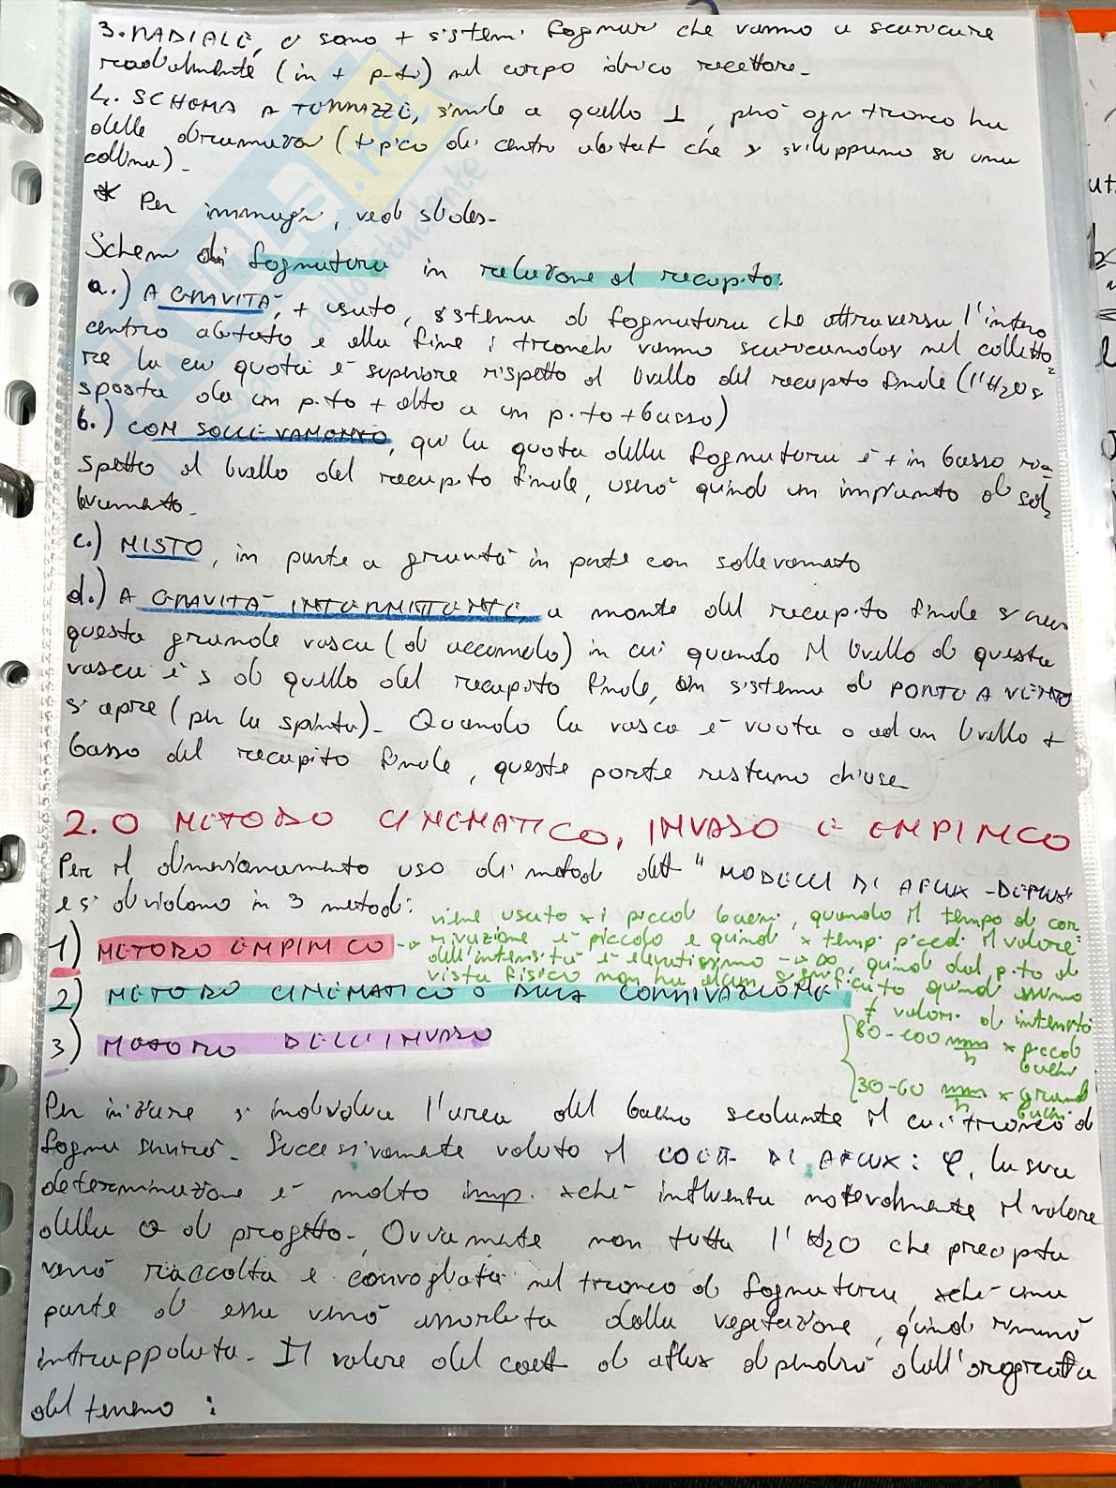 3. RADIALE, ci sono + sistemi fognari che vanno a scaricare
radialmente (in + p.ti) nel corpo idrico recettore.
4. SCHEMA A TERRAZZE, simile a quello ⊥, però ogni tronco ha
delle diramazioni (tipico di centri abitati che si sviluppano su una
collina).
* Per immagini, vedi slides.
Schemi di fognatura in relazione al recapito:
a.) A GRAVITÀ, + usato, sistema di fognatura che attraversa l'intero
centro abitato e alla fine i tronchi vanno scaricandosi nel colletto
re la cui quota è superiore rispetto al livello del recapito finale (l'H2O si
sposta da un p.to + alto a un p.to + basso)
b.) CON SOLLEVAMENTO, qui la quota della fognatura è + in basso ri=
spetto al livello del recapito finale, userò quindi un impianto di sol
levamento.
c.) MISTO, in parte a gravità in parte con sollevamento
d.) A GRAVITÀ INTERMITTENTE, a monte del recapito finale si ha
questa grande vasca (di accumulo) in cui quando il livello di questa
vasca è > di quello del recapito finale, un sistema di PORTE A VENTO
s'apre (per la spinta). Quando la vasca è vuota o ad un livello +
basso del recapito finale, queste porte restano chiuse
2.0 METODO CINEMATICO, INVASO E EMPIRICO
Per il dimensionamento uso dei metodi detti "MODELLI DI AFLUX-DEFLUX"
e si dividono in 3 metodi:
1) METODO EMPIRICO → viene usato x i piccoli bacini, quando il tempo di cor
rivazione è piccolo e quindi x tempi piccoli il valore
dell'intensità è elevatissimo → ∞, quindi dal p.to di
vista fisico non ha alcun significato quindi assumo
≠ valori di intensità
80-100 mm/h x piccoli
bacini
30-60 mm/h x grandi
bacini
2) METODO CINEMATICO O DELLA CORRIVAZIONE
3) METODO DELL'INVASO
Per iniziare si individua l'area del bacino scolante il cui tronco di
fogna servirà. Successivamente valuto il COEFF. DI AFLUX: φ, la sua
determinazione è molto imp. xchè influenza notevolmente il valore
della Q di progetto. Ovviamente non tutta l'H2O che precipita
verrà raccolta e convogliata nel tronco di fognatura, xchè una
parte di essa verrà assorbita dalla vegetazione, quindi rimarrà
intrappolata. Il valore del coeff di aflux dipenderà dall'orografia
del terreno :